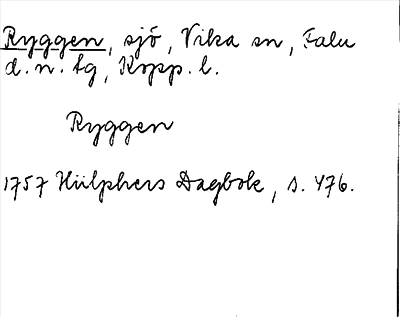 Ryggen, sjö, Vika sn, Falu
d. n. tg, Kopp. l.
Ryggen
1757 Hülphers Dagbok, s. 476.